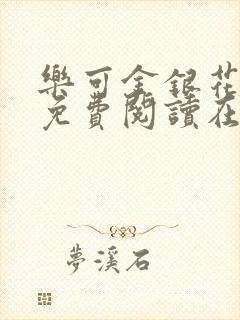 樂可金銀花
免費閱讀在
夢溪石